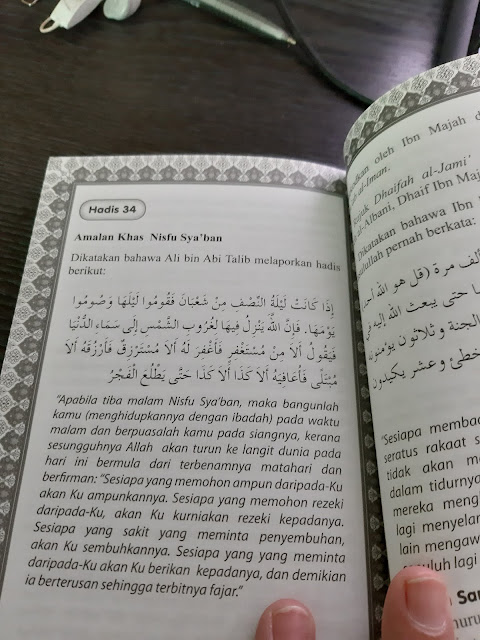 Hadis 34
Amalan Khas Nisfu Sya'ban
Dikatakan bahawa Ali bin Abi Talib melaporkan hadis
berikut:
إِذَا كَانَتْ لَيْلَةُ النِّصْفِ مِنْ شَعْبَانَ فَقُومُوا لَيْلَهَا وَصُومُوا
يَوْمَهَا. فَإِنَّ اللَّهَ يَنْزِلُ فِيهَا لِغُرُوبِ الشَّمْسِ إِلَى سَمَاءِ الدُّنْيَا
فَيَقُولُ أَلاَ مِنْ مُسْتَغْفِرٍ فَأَغْفِرَ لَهُ أَلاَ مُسْتَرْزِقٌ فَأَرْزُقَهُ أَلاَ
مُبْتَلًى فَأُعَافِيَهُ أَلاَ كَذَا أَلاَ كَذَا حَتَّى يَطْلُعَ الْفَجْرُ
"Apabila tiba malam Nisfu Sya'ban, maka bangunlah
kamu (menghidupkannya dengan ibadah) pada waktu
malam dan berpuasalah kamu pada siangnya, kerana
sesungguhnya Allah akan turun ke langit dunia pada
hari ini bermula dari terbenamnya matahari dan
berfirman: "Sesiapa yang memohon ampun daripada-Ku
akan Ku ampunkannya. Sesiapa yang memohon rezeki
daripada-Ku, akan Ku kurniakan rezeki kepadanya.
Sesiapa yang sakit yang meminta penyembuhan,
akan Ku sembuhkannya. Sesiapa yang yang meminta
daripada-Ku akan Ku berikan kepadanya, dan demikian
ia berterusan sehingga terbitnya fajar."
oleh Ibn Majah
al-Iman.
Dhaifah al-Jami'
al-Albani, Dhaif Ibn Maj
Dikatakan bahawa Ibn
pernah berkata:
ألف مرة (قل هو الله أحد
حتى يبعث الله إليه في
الجنة و ثلاثون يؤمنونه
وعشر يكيدون
"Sesiapa memba
seratus rakaat s
tidak akan m
dalam tidurnya
mereka meng
lagi menyelar
lain mengaw
puluh lagi